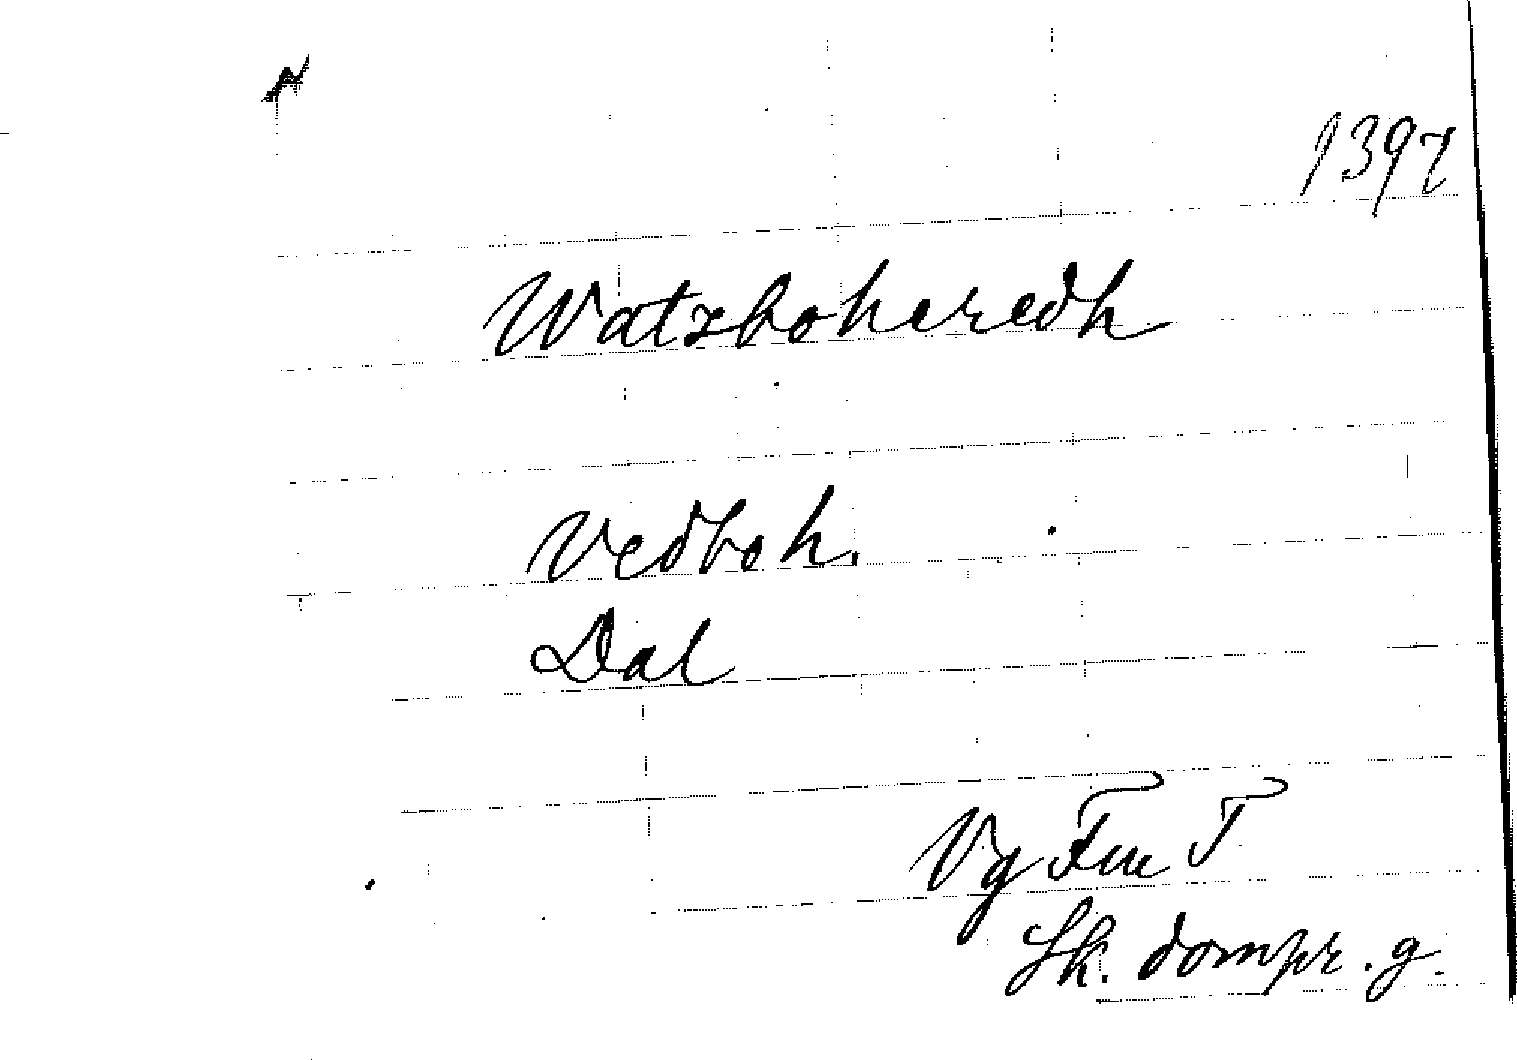 1397
Watzbohæredh
Vedboh.
Dal
Vg Fru T
Sk. dompr. g.